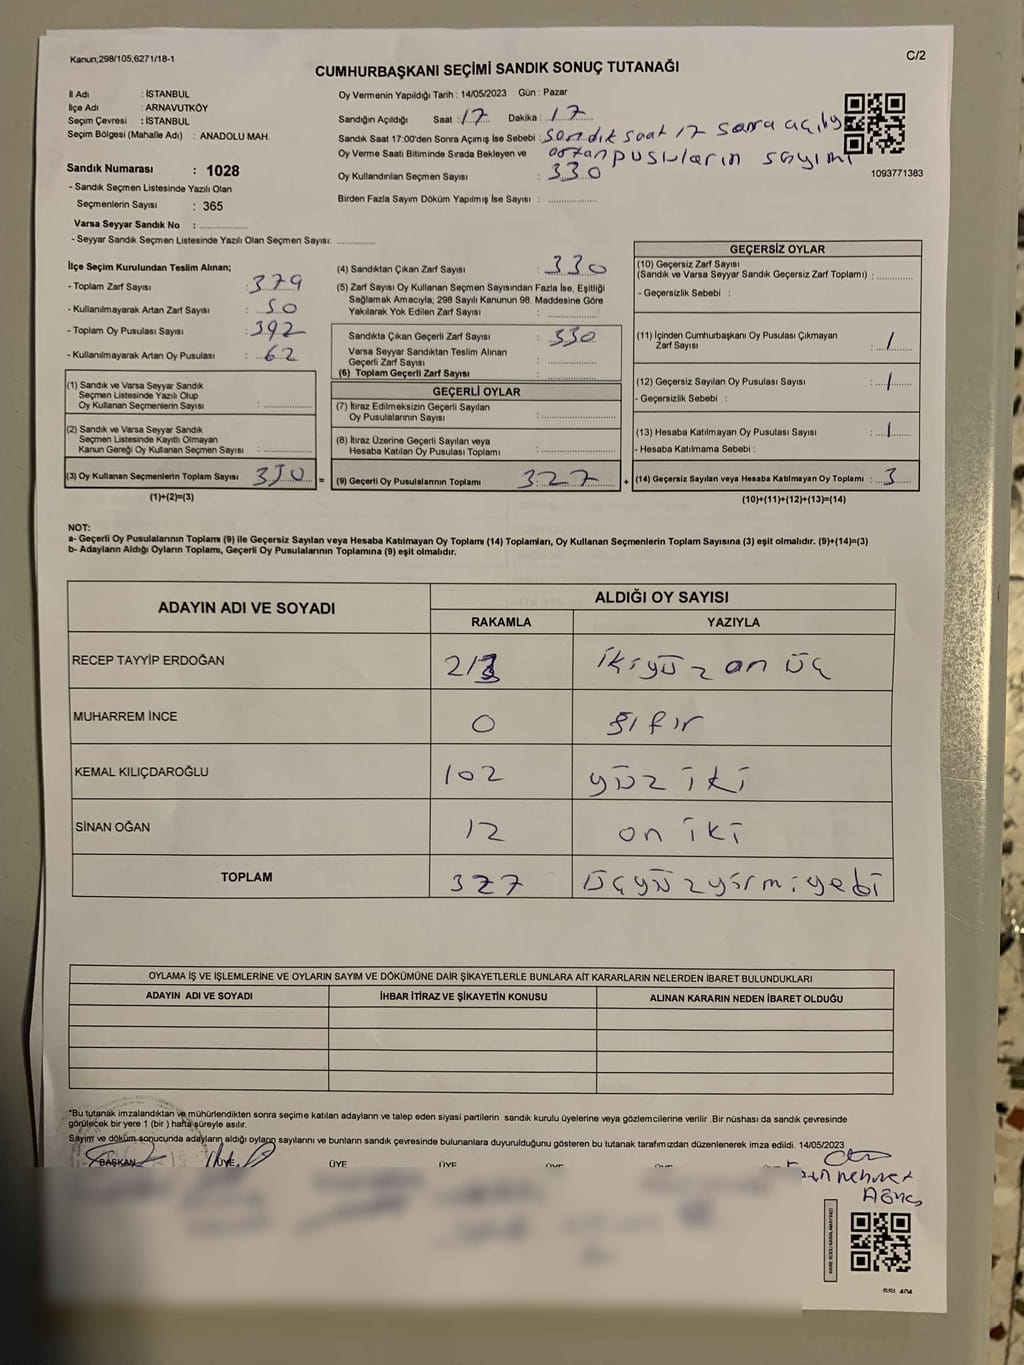 Kanun;298/105,6271/18-1
C/2
CUMHURBAŞKANI SEÇİMİ SANDIK SONUÇ TUTANAĞI
İl Adı : İSTANBUL
İlçe Adı : ARNAVUTKÖY
Seçim Çevresi : İSTANBUL
Seçim Bölgesi (Mahalle Adı) : ANADOLU MAH.
Sandık Numarası : 1028
- Sandık Seçmen Listesinde Yazılı Olan
Seçmenlerin Sayısı : 365
Varsa Seyyar Sandık No :
- Seyyar Sandık Seçmen Listesinde Yazılı Olan Seçmen Sayısı:
Oy Vermenin Yapıldığı Tarih : 14/05/2023 Gün : Pazar
Sandığın Açıldığı Saat : 17 Dakika : 17
Sandık Saat 17:00'den Sonra Açımış İse Sebebi : sandık saat 17 sonra
Oy Verme Saati Bitiminde Sırada Bekleyen ve pusuların sayımı
Oy Kullandırılan Seçmen Sayısı : 330
Birden Fazla Sayım Döküm Yapılmış İse Sayısı :
1093771383
İlçe Seçim Kurulundan Teslim Alınan;
- Toplam Zarf Sayısı : 379
- Kullanılmayarak Artan Zarf Sayısı : 50
- Toplam Oy Pusulası Sayısı : 392
- Kullanılmayarak Artan Oy Pusulası : 62
(1) Sandık ve Varsa Seyyar Sandık
Seçmen Listesinde Yazılı Olup
Oy Kullanan Seçmenlerin Sayısı :
(2) Sandık ve Varsa Seyyar Sandık
Seçmen Listesinde Kayıtlı Olmayan
Kanun Gereği Oy Kullanan Seçmen Sayısı :
(3) Oy Kullanan Seçmenlerin Toplam Sayısı 330 =
(1)+(2)=(3)
(4) Sandıktan Çıkan Zarf Sayısı : 330
(5) Zarf Sayısı Oy Kullanan Seçmen Sayısından Fazla İse, Eşitliği
Sağlamak Amacıyla; 298 Sayılı Kanunun 98. Maddesine Göre
Yakılarak Yok Edilen Zarf Sayısı :
Sandıkta Çıkan Geçerli Zarf Sayısı : 330
Varsa Seyyar Sandıktan Teslim Alınan
Geçerli Zarf Sayısı :
(6) Toplam Geçerli Zarf Sayısı :
GEÇERLİ OYLAR
(7) İtiraz Edilmeksizin Geçerli Sayılan
Oy Pusulalarının Sayısı :
(8) İtiraz Üzerine Geçerli Sayılan veya
Hesaba Katılan Oy Pusulası Toplamı :
(9) Geçerli Oy Pusulalarının Toplamı 327 +
GEÇERSİZ OYLAR
(10) Geçersiz Zarf Sayısı
(Sandık ve Varsa Seyyar Sandık Geçersiz Zarf Toplamı) :
- Geçersizlik Sebebi :
(11) İçinden Cumhurbaşkanı Oy Pusulası Çıkmayan
Zarf Sayısı : 1
(12) Geçersiz Sayılan Oy Pusulası Sayısı : 1
- Geçersizlik Sebebi :
(13) Hesaba Katılmayan Oy Pusulası Sayısı : 1
- Hesaba Katılmama Sebebi :
(14) Geçersiz Sayılan veya Hesaba Katılmayan Oy Toplamı : 3
(10)+(11)+(12)+(13)=(14)
NOT:
a- Geçerli Oy Pusulalarının Toplamı (9) ile Geçersiz Sayılan veya Hesaba Katılmayan Oy Toplamı (14) Toplamları, Oy Kullanan Seçmenlerin Toplam Sayısına (3) eşit olmalıdır. (9)+(14)=(3)
b- Adayların Aldığı Oyların Toplamı, Geçerli Oy Pusulalarının Toplamına (9) eşit olmalıdır.
ADAYIN ADI VE SOYADI ALDIĞI OY SAYISI
RAKAMLA YAZIYLA
RECEP TAYYİP ERDOĞAN 213 ikiyüz on üç
MUHARREM İNCE 0 sıfır
KEMAL KILIÇDAROĞLU 102 yüz iki
SİNAN OĞAN 12 on iki
TOPLAM 327 üçyüzyirmiyedi
OYLAMA İŞ VE İŞLEMLERİNE VE OYLARIN SAYIM VE DÖKÜMÜNE DAİR ŞİKAYETLERLE BUNLARA AİT KARARLARIN NELERDEN İBARET BULUNDUKLARI
ADAYIN ADI VE SOYADI İHBAR İTİRAZ VE ŞİKAYETİN KONUSU ALINAN KARARIN NEDEN İBARET OLDUĞU
*Bu tutanak imzalandıktan ve mühürlendikten sonra seçime katılan adayların ve talep eden siyasi partilerin sandık kurulu üyelerine veya gözlemcilerine verilir .Bir nüshası da sandık çevresinde
görülecek bir yere 1 (bir ) hafta süreyle asılır.
Sayım ve döküm sonucunda adayların aldığı oyların sayılarını ve bunların sandık çevresinde bulunanlara duyurulduğunu gösteren bu tutanak tarafımızdan düzenlenerek imza edildi. 14/05/2023
BAŞKAN ÜYE ÜYE ÜYE